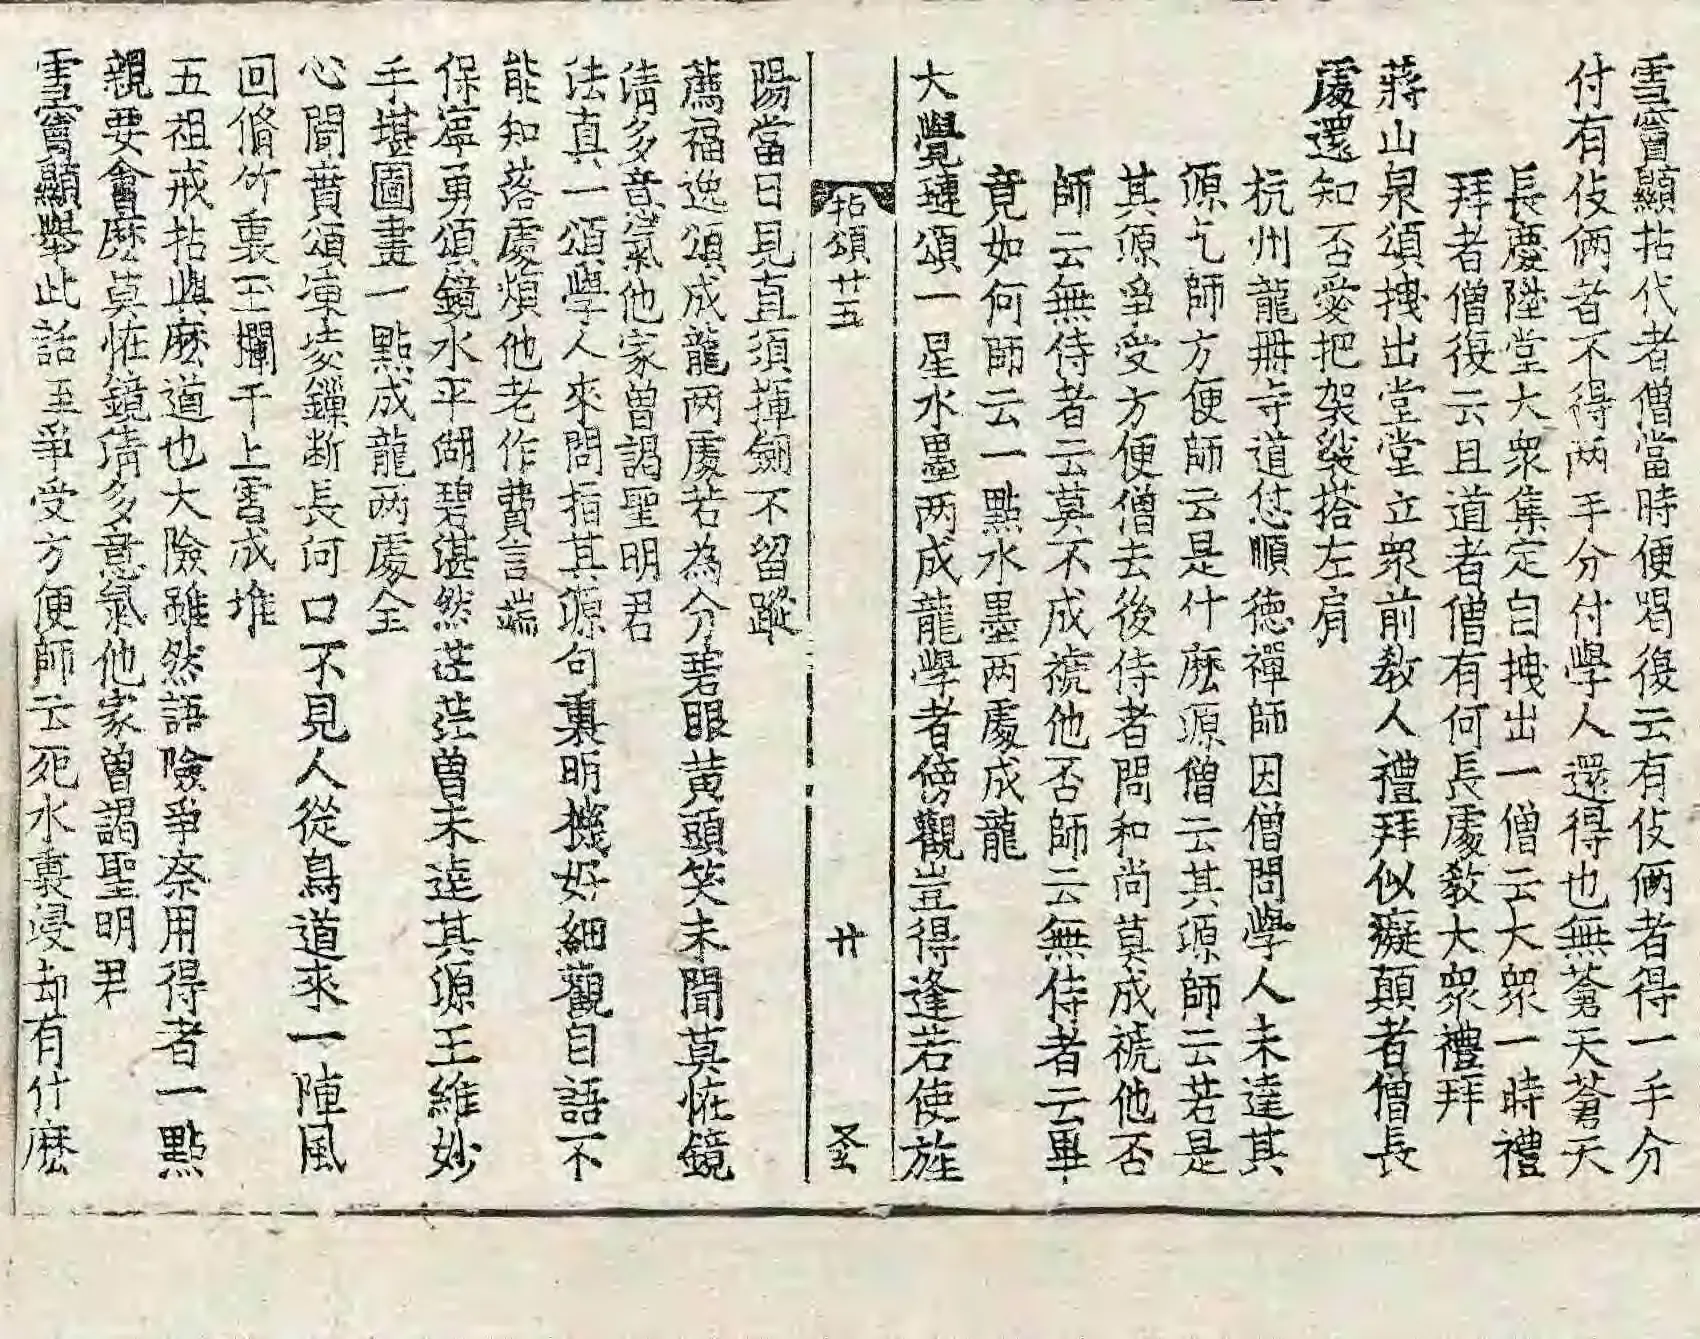 雪竇顯拈代者僧當時便喝復云有伎倆者得一手分
付有伎倆者不得两手分付學人還得也無蒼天蒼天
長慶陞堂大衆集定自拽出一僧云大衆一時禮
拜者僧復云且道者僧有何長處教大衆禮拜
蔣山泉頌拽出堂堂立衆前教人禮拜似癡顛者僧長
處還知否愛把袈裟搭左肩
杭州龍冊寺道怤順德禪師因僧問學人未達其
源乞師方便師云是什麽源僧云其源師云若是
其源爭受方便僧去後侍者問和尚莫成褫他否
師云無侍者云莫不成褫他否師云無侍者云畢
竟如何師云一點水墨两處成龍
大覺璉頌一星水墨两成龍學者傍觀豈得逢若使旌
拈頌廿五
廿
圣
陽當日見直須揮劍不留蹤
薦福逸頌成龍两處若為分碧眼黄頭笑未聞莫恠鏡
清多意氣他家曽謁聖明君
法真一頌學人來問指其源句裏明機好細觀自語不
能知落處煩他老作費言端
保寧勇頌鏡水平湖碧湛然茫茫曽未達其源王維妙
手堪圖畫一點成龍两處全
心聞賁頌東坡鏁断長何口不見人從鳥道來一陣風
回脩竹裏玉攔干上雪成堆
五祖戒拈與麽道也大險雖然語險爭奈用得者一點
親要會麽莫恠鏡清多意氣他家曽謁聖明君
雪竇顯舉此話至爭受方便師云死水裏浸却有什麽